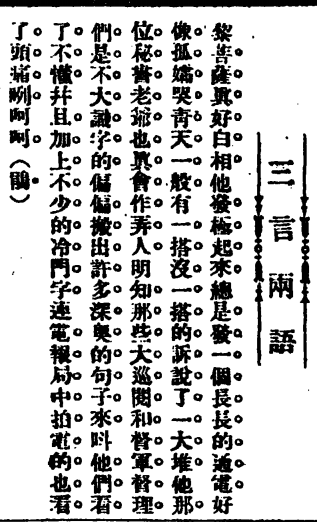 三言兩語
黎菩薩眞好白相他發極起來總是發一個長長的通電好
像孤孀哭靑天一般有一搭沒一搭的訴說了一大堆他那
位秘書老爺也眞會作弄人明知那些大巡閱和督軍督理
們是不大識字的偏偏搬出許多深奥的句子來呌他們看
了不懂幷且加上不少的冷門字連電報局中拍電的也看
了頭痛咧呵呵（鵑）